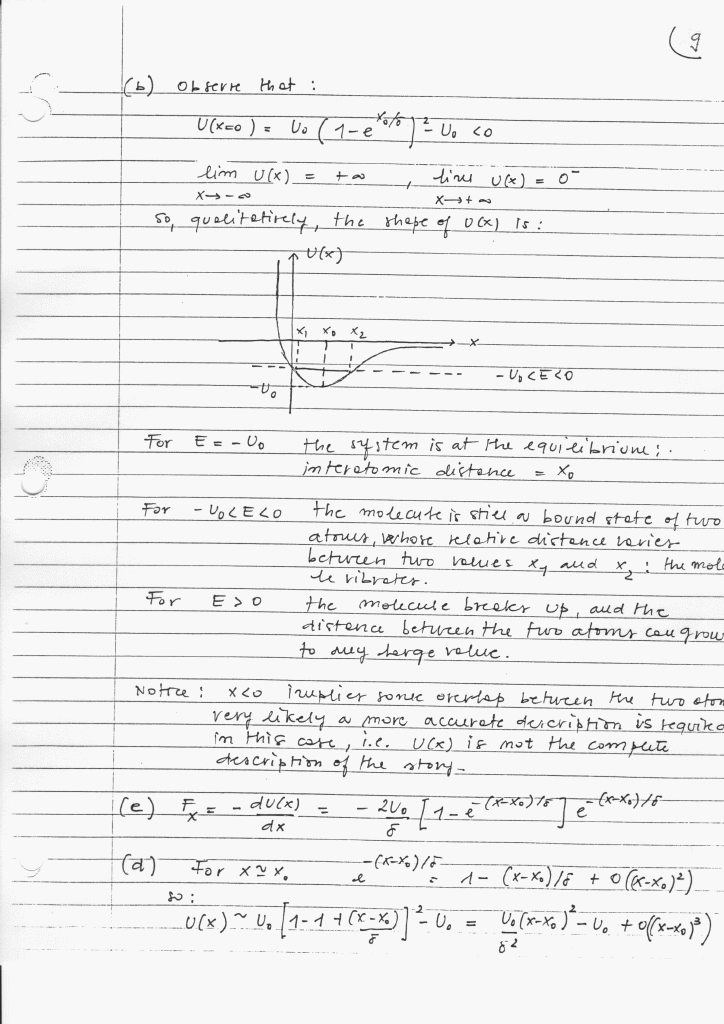 (9
(b) Observe that :
U(x=0) = U₀ (1-e^{x₀/δ})² - U₀ <0
lim U(x) = +∞ , lim U(x) = 0⁻
x→-∞ x→+∞
so, qualitatively, the shape of U(x) is :
U(x)
x₁ x₀ x₂
x
-U₀<E<0
-U₀
For E = -U₀ the system is at the equilibrium ;
interatomic distance = x₀
For -U₀<E<0 the molecule is still a bound state of two
atoms, whose relative distance varies
between two values x₁ and x₂ : the mole
le vibrates.
For E>0 the molecule breaks up, and the
distance between the two atoms can grow
to any large value.
Notice : x<0 implies some overlap between the two atom
very likely a more accurate description is required
in this case, i.e. U(x) is not the complete
description of the story-
(e) Fₓ = - dU(x)/dx = - 2U₀/δ [1-e^{-(x-x₀)/δ}] e^{-(x-x₀)/δ}
(d) For x≃x₀ e^{-(x-x₀)/δ} = 1- (x-x₀)/δ + O((x-x₀)²)
so :
U(x) ~ U₀ [1-1+(x-x₀)/δ]² - U₀ = U₀(x-x₀)²/δ² - U₀ + O((x-x₀)³)